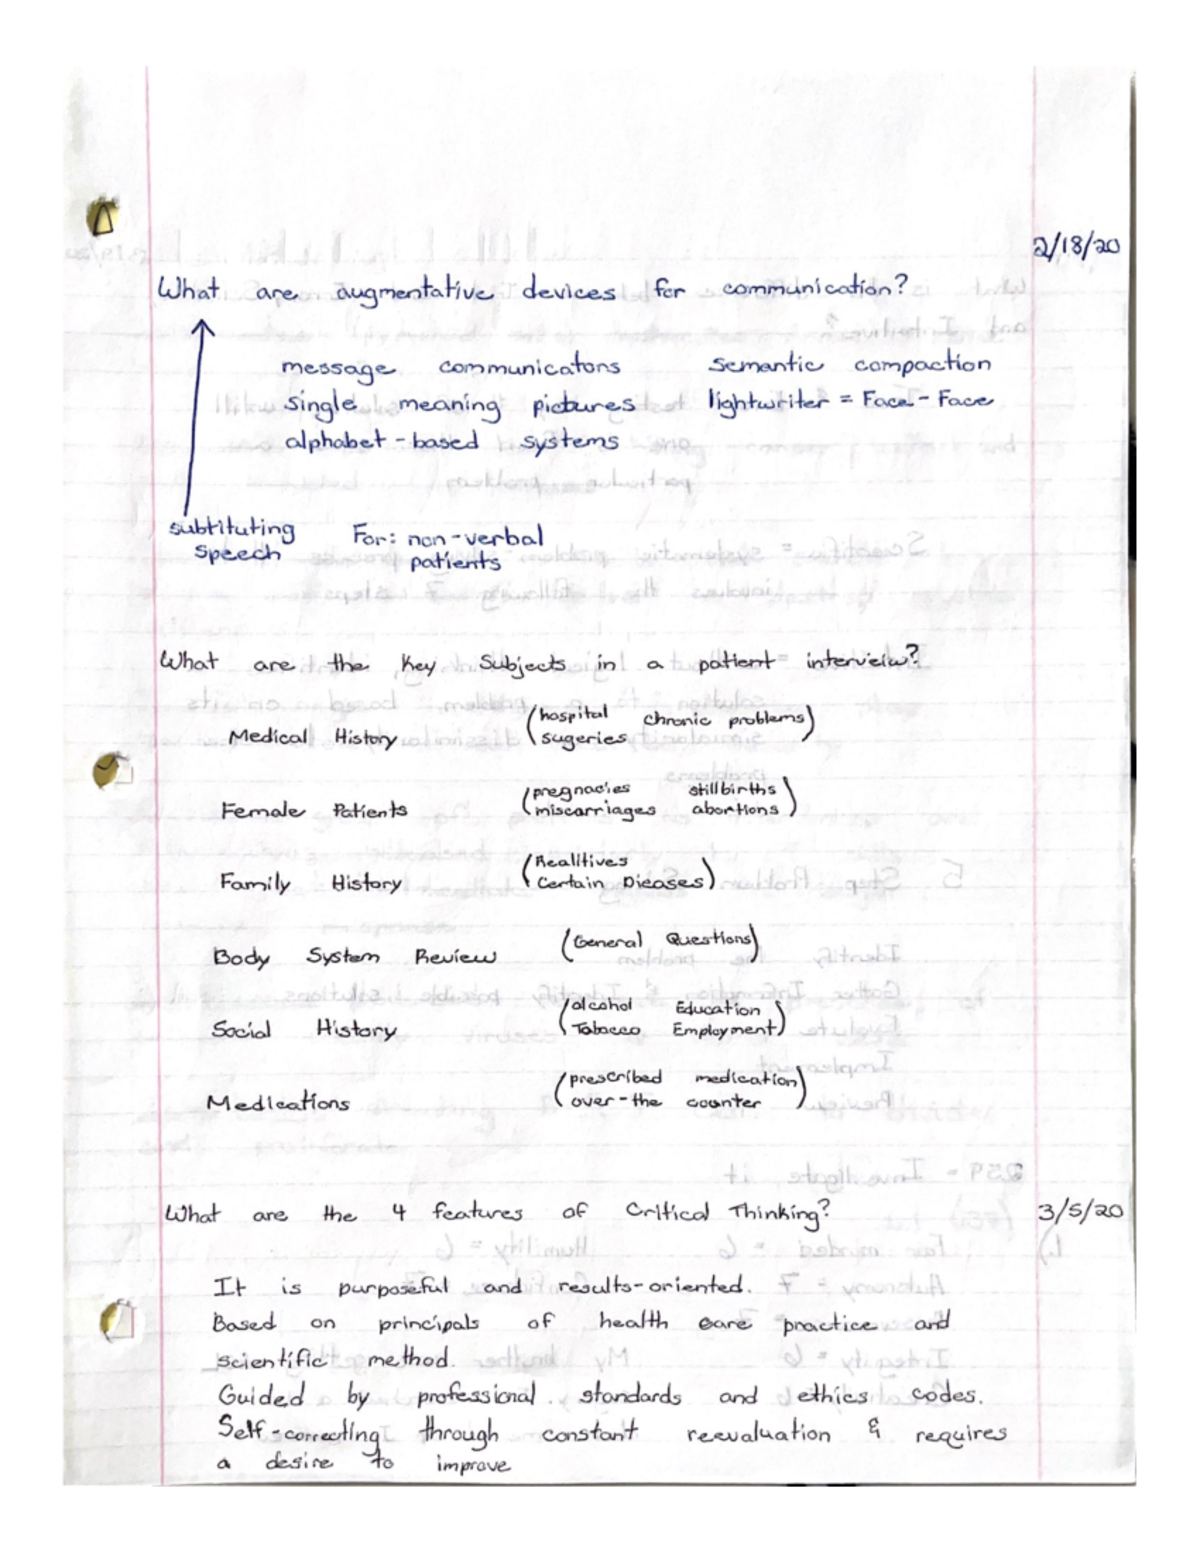 2/18/20
What are augmentative devices for communication?
message communicatons semantic compaction
single meaning pictures lightwriter = Face-Face
alphabet-based systems
subtituting For: non-verbal
speech patients
What are the key subjects in a patient interveiw?
(hospital chronic problems)
Medical History sugeries
(pregnacies stillbirths
Female Patients miscarriages abortions)
(Realitives
Family History Certain Dieases)
Body System Review (General Questions)
(alcohol Education
Social History Tobacco Employment)
(prescribed medication)
Medications over-the counter
What are the 4 features of Critical Thinking? 3/5/20
It is purposeful and results-oriented.
Based on principals of health care practice and
scientific method.
Guided by professional standards and ethics codes.
Self-correcting through constant reevaluation & requires
a desire to improve